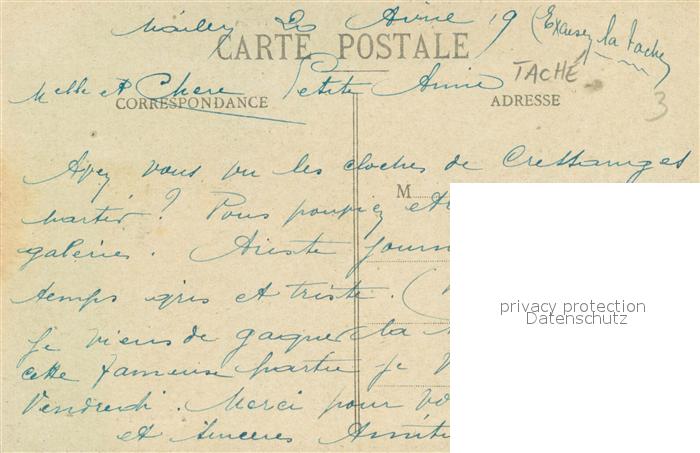 Mailly 20 Avril 19 (Excusez la tache)
CARTE POSTALE
TACHÉ
Melle et Chere Petite Amie
CORRESPONDANCE
ADRESSE
3
Avez vous vu les cloches de Cressanges
M
partir ? Vous
galeries. Triste journ
temps gris et triste. (
je viens de gagner la
cette fameuse partie je
Vendredi. Merci pour vo
et sinceres Amiti
privacy protection
Datenschutz